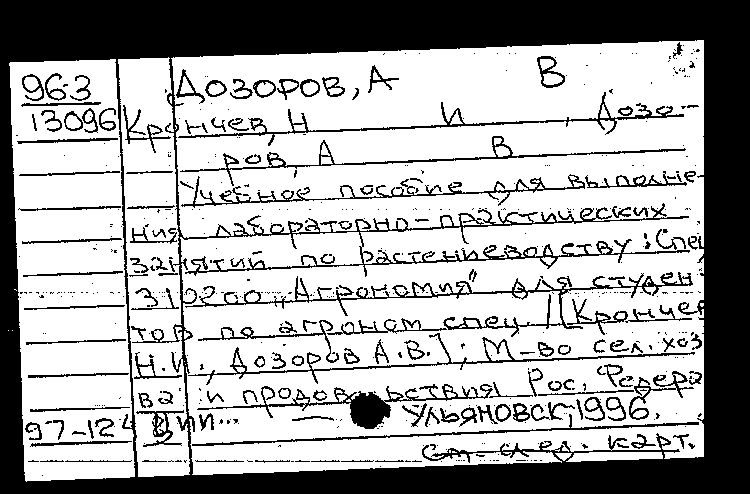 963 ДОЗОРОВ, А В
13096 Крончев, Н И , Дозо-
ров, А В
Учебное пособие для выполне-
ния лабораторно-практических
занятий по растениеводству: Спец
310200 „Агрономия" для студен-
тов по агроном спец. / [Крончев
Н.И., Дозоров А.В.]; М-во сел. хоз
ва и продовольствия Рос. Федера
ции... — Ульяновск, 1996.
97-124
См. след. карт.